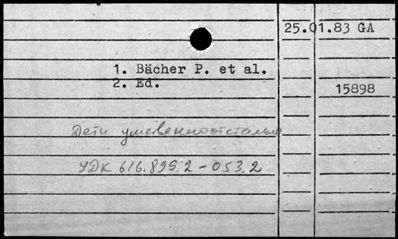 25.01.83 GA
1. Bächer P. et al.
2. Ed.
15898
Дети умственноотсталые
УДК 616.899.2-053.2